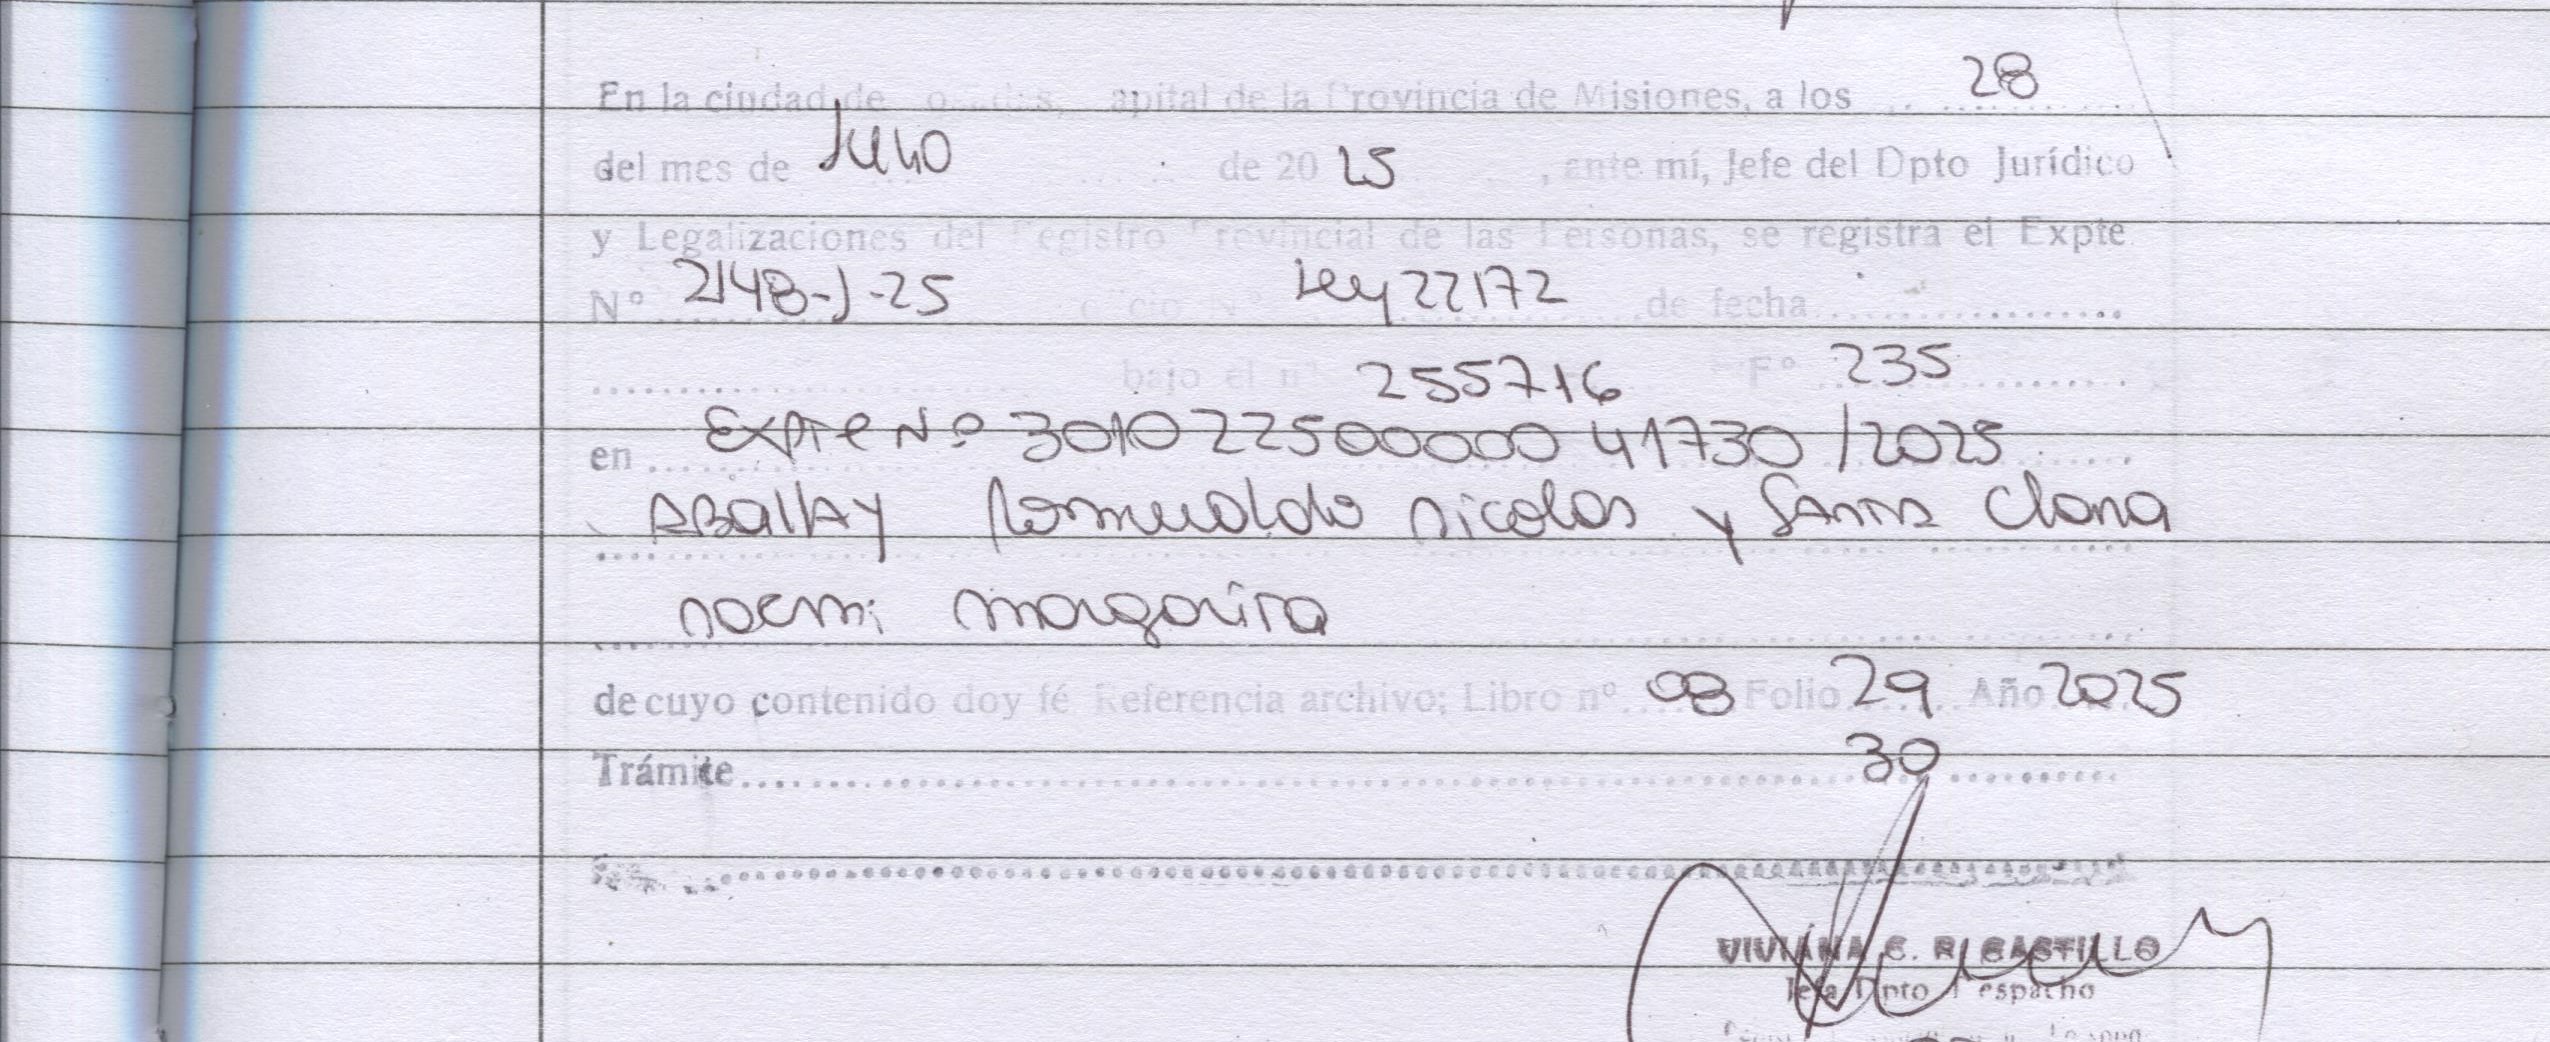 En la ciudad de Posadas, Capital de la Provincia de Misiones, a los 28
del mes de Julio de 20 25, ante mí, Jefe del Dpto Jurídico
y Legalizaciones del Registro Provincial de las Personas, se registra el Expte
Nº 2148-J-25 oficio Nº Ley 22172 de fecha
bajo el nº 255716 Fº 235
en Expte Nº 301022500000 41730/2025
ABallAY Romualdo nicolas y SANTA Clara
noemi margarita
de cuyo contenido doy fé Referencia archivo; Libro nº 08 Folio 29 Año 2025
Trámite 30
VIVIANA C. R. CASTILLO
Jefa Dpto Despacho